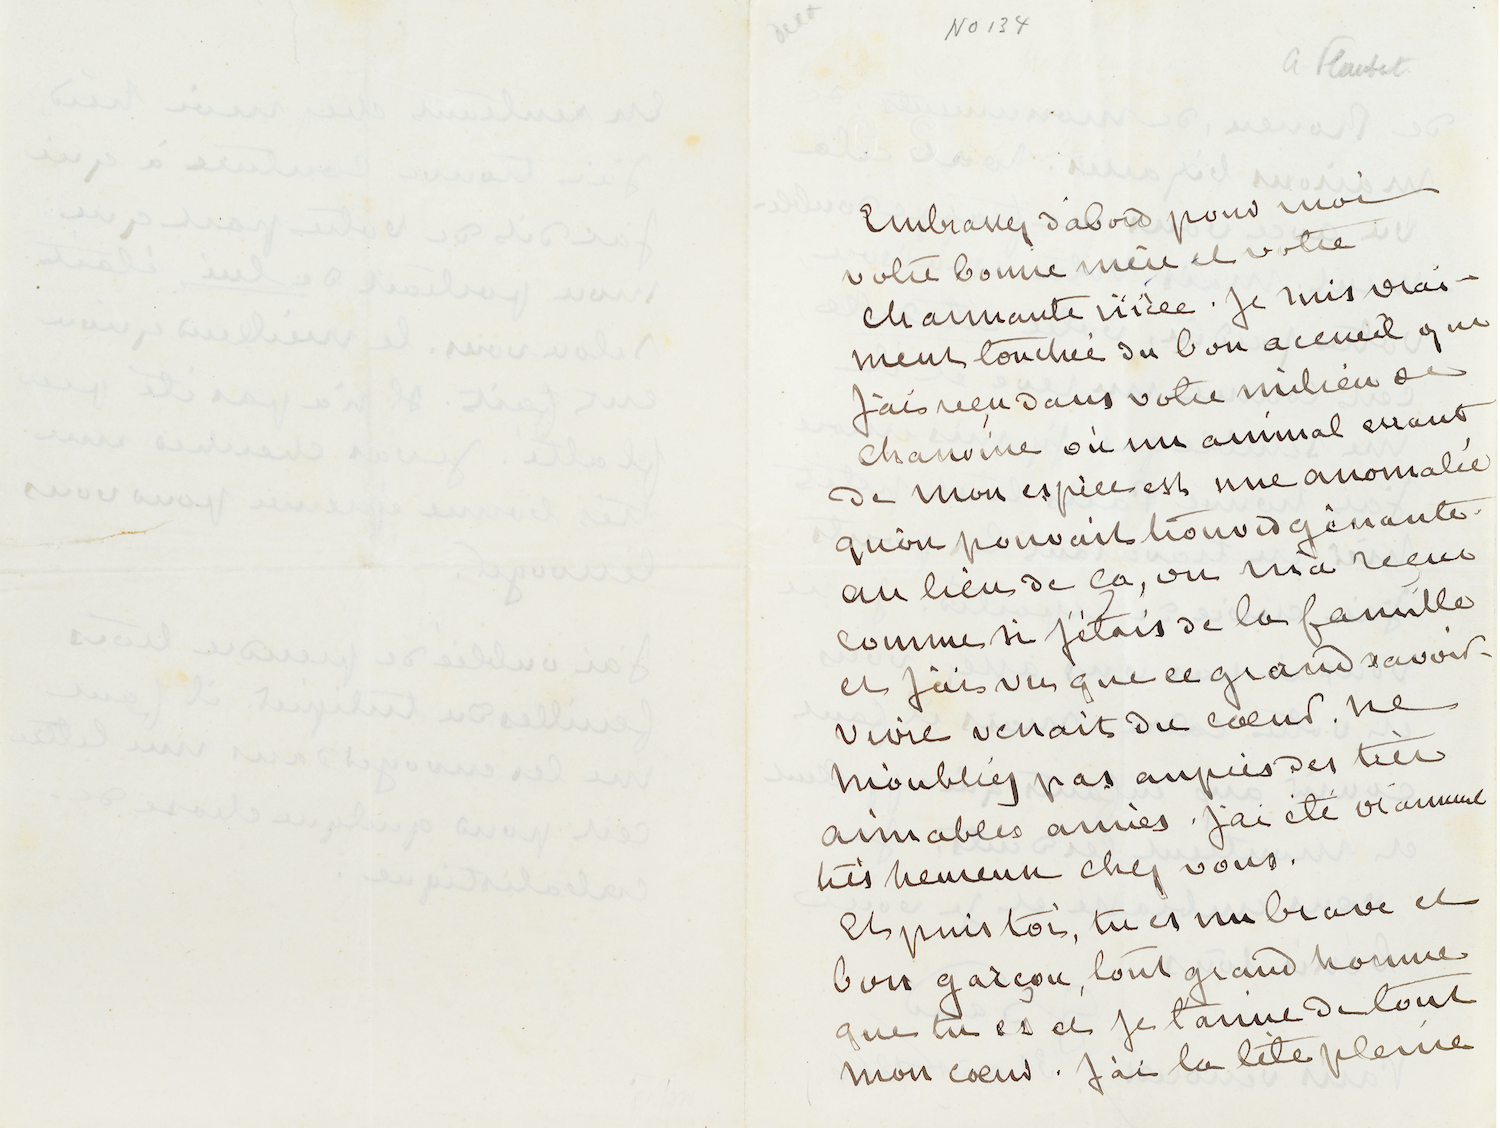 No 134
a Flaubert
Embrassez d'abord pour moi
votre bonne mère et votre
charmante nièce. Je suis vrai-
ment touchée du bon accueil que
j'ai reçu dans votre milieu de
chanoine où un animal errant
de mon espèce est une anomalie
qu'on pouvait trouver gênante.
au lieu de ça, on m'a reçue
comme si j'étais de la famille
et j'ai vu que ce grand savoir-
vivre venait du cœur. Ne
m'oubliez pas auprès des très
aimables amies. j'ai été vraiment
très heureuse chez vous.
Et puis toi, tu es un brave et
bon garçon, tout grand homme
que tu es et je t'aime de tout
mon cœur. J'ai la tête pleine